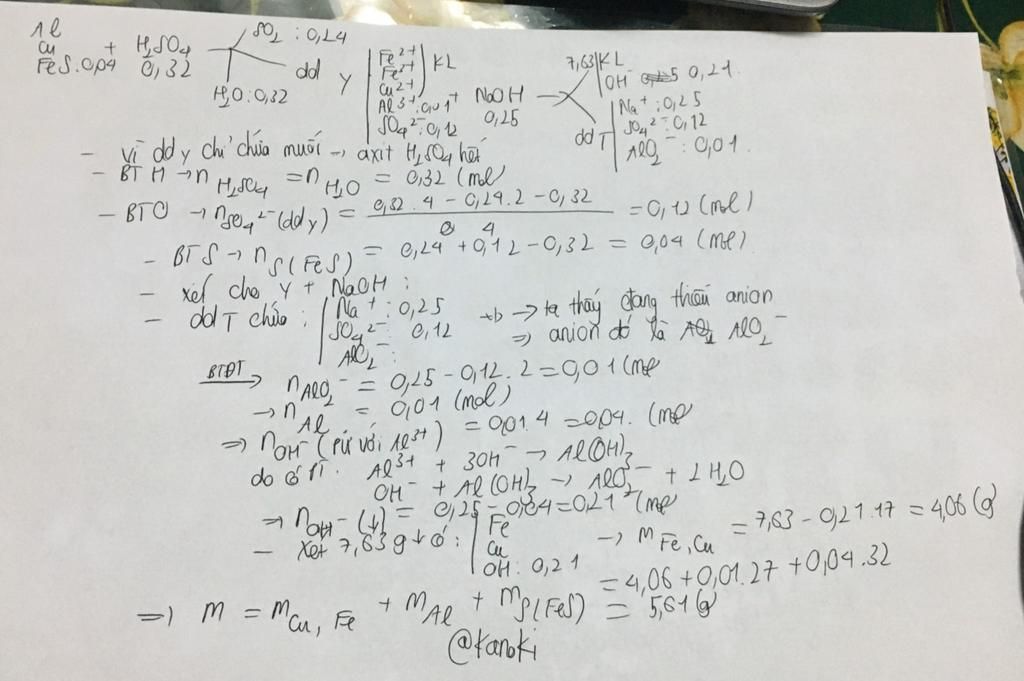 Al
Cu + H2SO4 SO2 : 0,24
FeS : 0,04 0,32 dd Y Fe2+ Fe3+ Cu2+ KL Al3+ : 0,01 SO42- : 0,12 + NaOH 0,25
H2O : 0,32
7,63 KL OH- 0,21
dd T Na+ : 0,25 SO42- : 0,12 AlO2- : 0,01
- Vì dd Y chỉ chứa muối → axit H2SO4 hết
- BT H → nH2SO4 = nH2O = 0,32 (mol)
- BTO → nSO42- (dd Y) = (0,32.4 - 0,24.2 - 0,32) / 4 = 0,12 (mol)
- BTS → nS(FeS) = 0,24 + 0,12 - 0,32 = 0,04 (mol)
- xét cho Y + NaOH :
- dd T chứa : Na+ : 0,25 → ta thấy đang thiếu anion
SO42- : 0,12 ⇒ anion đó là AlO2-
AlO2- :
BTĐT → nAlO2- = 0,25 - 0,12.2 = 0,01 (mol
→ nAl = 0,01 (mol)
⇒ nOH- (pứ với Al3+) = 0,01.4 = 0,04. (mol
do có PT : Al3+ + 3OH- → Al(OH)3
OH- + Al(OH)3 → AlO2- + 2H2O
⇒ nOH- (↓) = 0,25 - 0,04 = 0,21 (mol
- Xét 7,63 g ↓ có : Fe Cu OH : 0,21 → mFe,Cu = 7,63 - 0,21.17 = 4,06 (g)
⇒ m = mCu, Fe + mAl + mS(FeS) = 4,06 + 0,01.27 + 0,04.32
= 5,61 (g)
@Kanoki